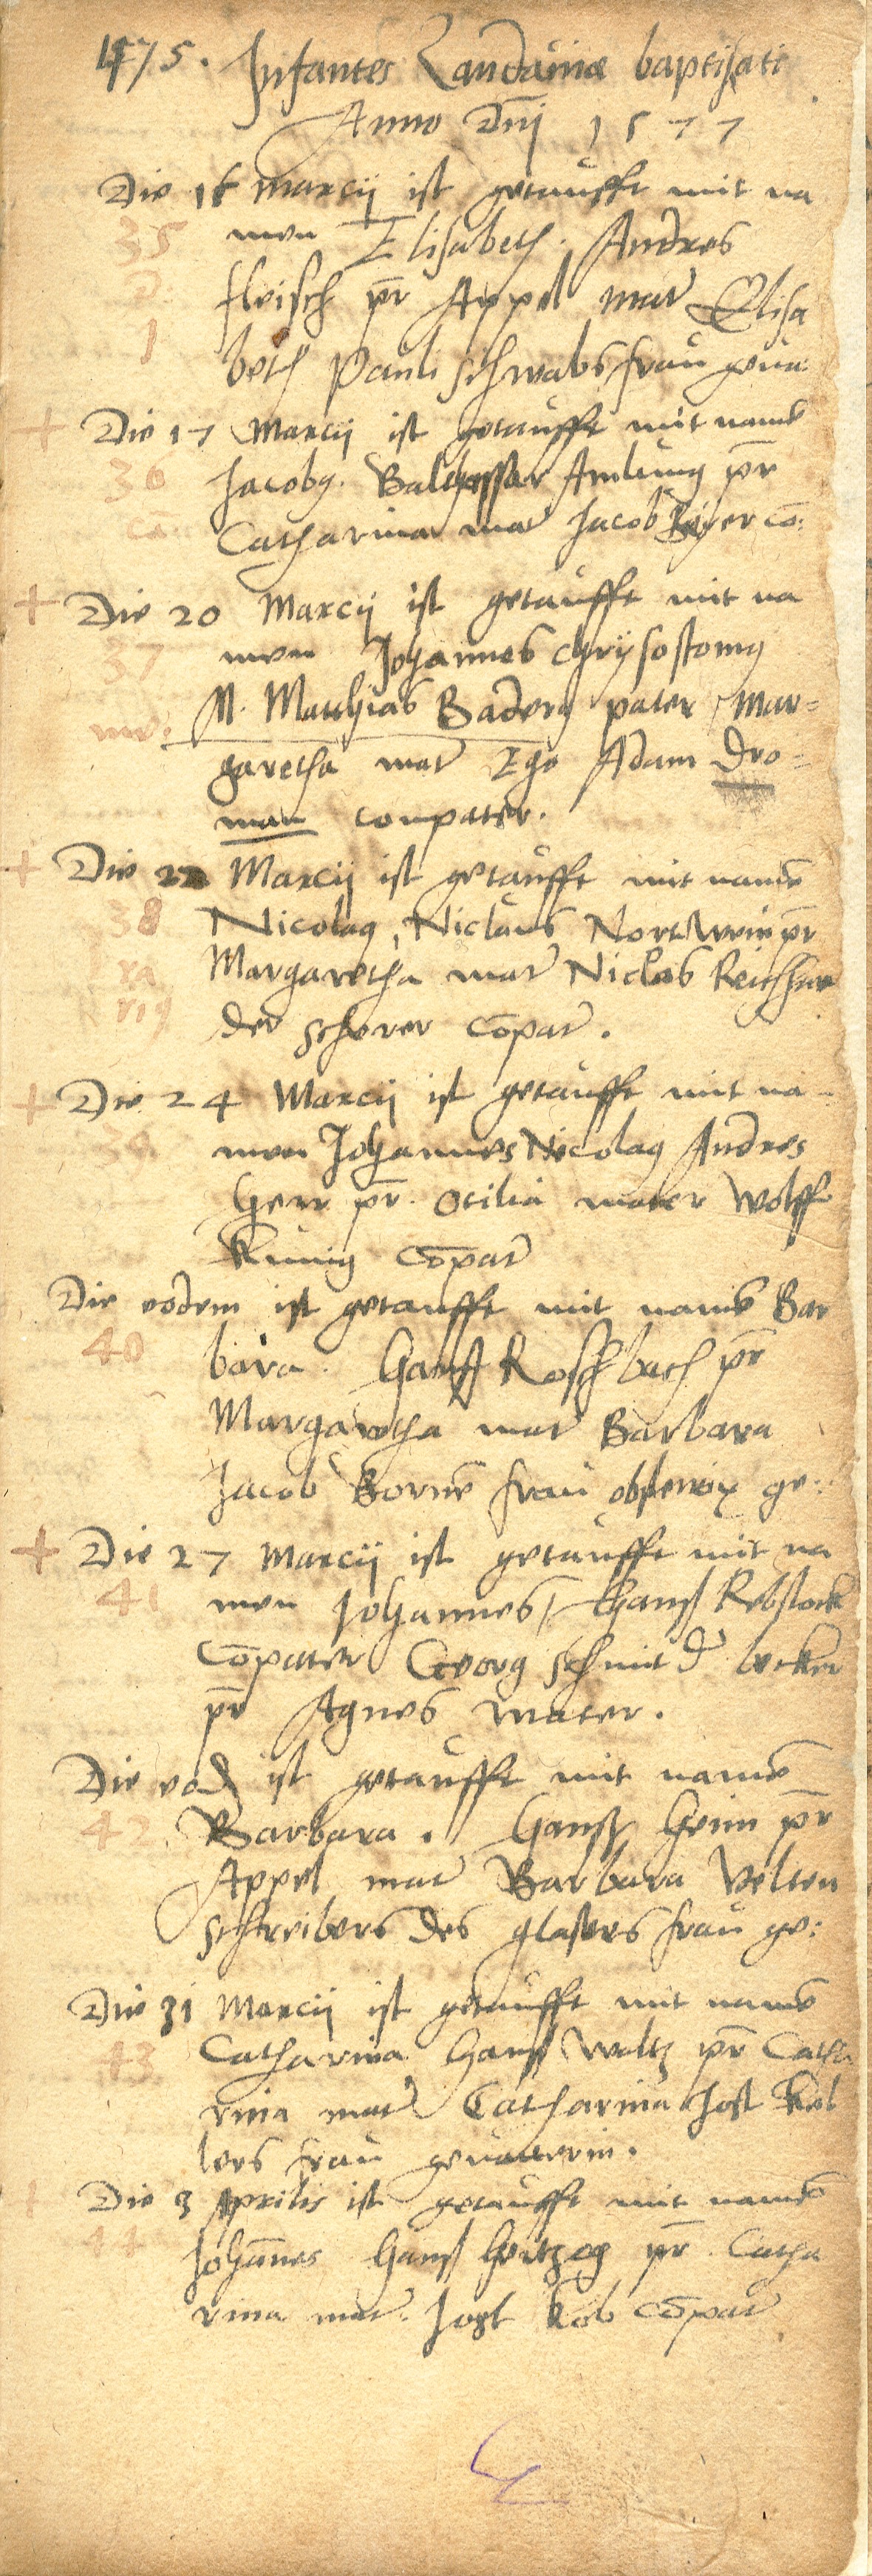 475. Infantes Landauiae baptisati
Anno Dnj 1577
Die 16 Marcij ist getaufft mit na
35 men Elisabeth. Andres
2 fleisch pr Appel mat Elisa
1 beth Pauli Schwabs frau geua
+ Die 17 Marcij ist getaufft mit name
36 Jacobg. Balthassar Amlung pr
ca Catharina mat Jacob Beyer co:
+ Die 20 Marcij ist getaufft mit na
37 men Johannes Chrysostomg
M. Matthias Baderg pater Mar=
garetha mat Ego Adam Dro=
man compater.
+ Die 22 Marcij ist getaufft mit name
38 Nicolag, Niclaus Nortwein pr
ra Margaretha mat Niclas
rig der scherer Copat.
+ Die 24 Marcij ist getaufft mit na-
39 men Johannes Nicolag Andres
Herr pr. Otilia mater Wolff
Kunig Copat
Die eodem ist getaufft mit name Bar
40 bara. Hanß Roschbach pr
Margaretha mat Barbara
Jacob Borne frau obstetrix ge:
+ Die 27 Marcij ist getaufft mit na
41 men Johannes, Hanß Rebstock
Copater Georg schmit d becker
pr Agnes mater.
Die eod ist getaufft mit name
42 Barbara. Hanß Heim pr
Appel mat Barbara Velten
schreibers des glasers frau ge:
Die 31 Marcij ist getaufft mit name
43 Catharina Hanß Woltz pr Catha
rina mat Catharina Jost Kel
lers frau geuatterin.
Die 3 Aprilis ist getaufft mit name
44 Johanes Hanß Hertzog pr. Catha
rina mat. Jost Kob Copat